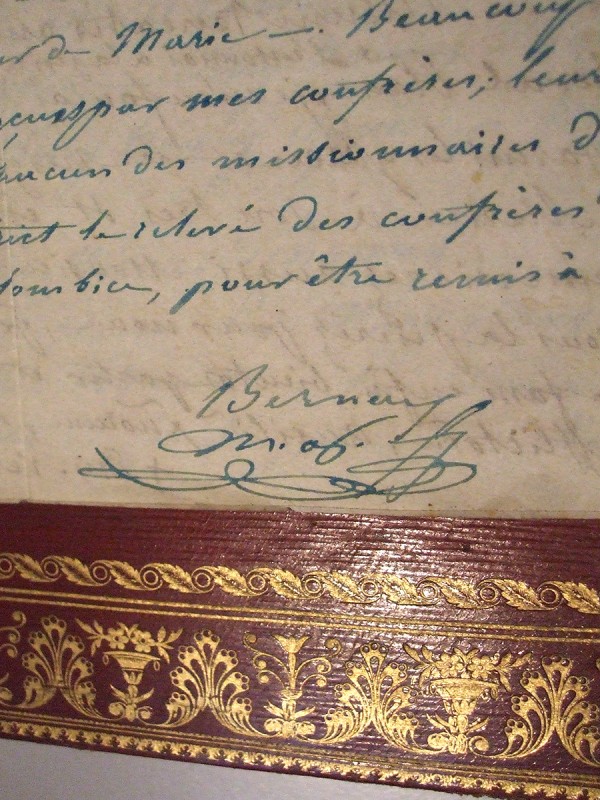 de Marie —. Beaucoup
par mes confrères; leur
des missionnaires d
le relevé des confrères
pour être remis à
Bernay
m. ap.